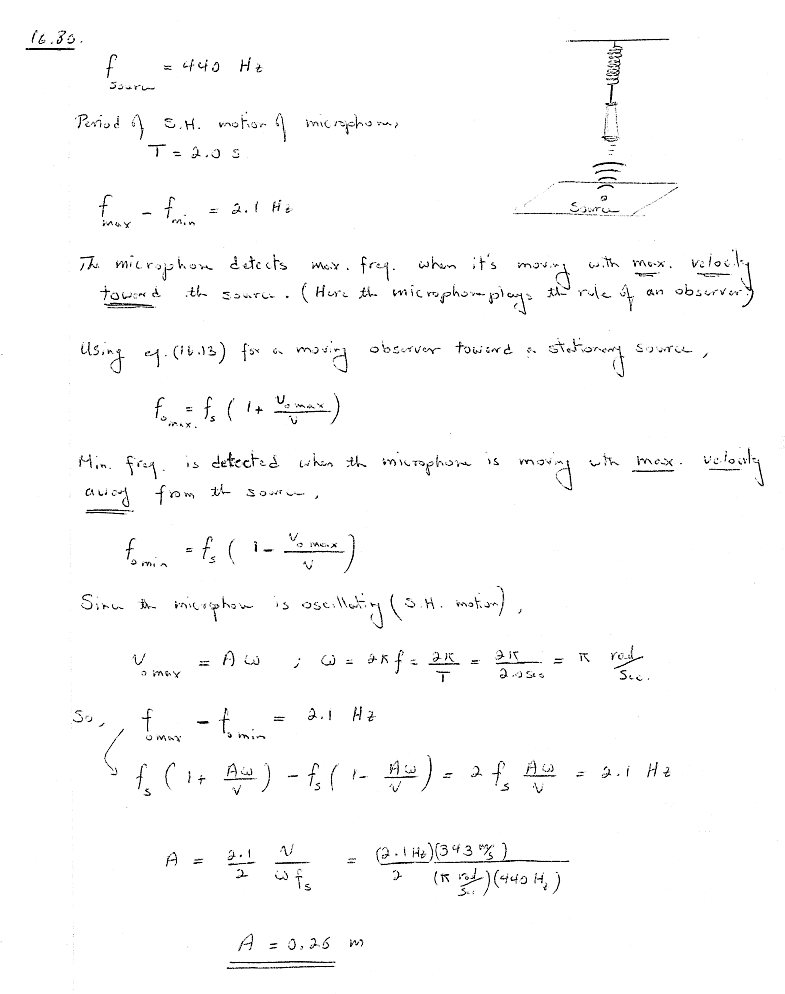 16.80.
f source = 440 Hz
Source
Period of S.H. motion of microphone,
T = 2.0 s
f max - f min = 2.1 Hz
The microphone detects max. freq. when it's moving with max. velocity
toward the source. (Here the microphone plays the role of an observer)
Using eq. (16.13) for a moving observer toward a stationary source,
f o max. = f s ( 1 + V o max / V )
Min. freq. is detected when the microphone is moving with max. velocity
away from the source,
f o min = f s ( 1 - V o max / V )
Since the microphone is oscillating (S.H. motion),
V o max = A ω ; ω = 2π f = 2π / T = 2π / 2.0 sec = π rad / Sec.
So, f o max - f o min = 2.1 Hz
f s ( 1 + Aω / V ) - f s ( 1 - Aω / V ) = 2 f s Aω / V = 2.1 Hz
A = 2.1 / 2 V / ω f s = (2.1 Hz)(343 m/s) / 2 (π rad/Sec)(440 Hz)
A = 0.26 m